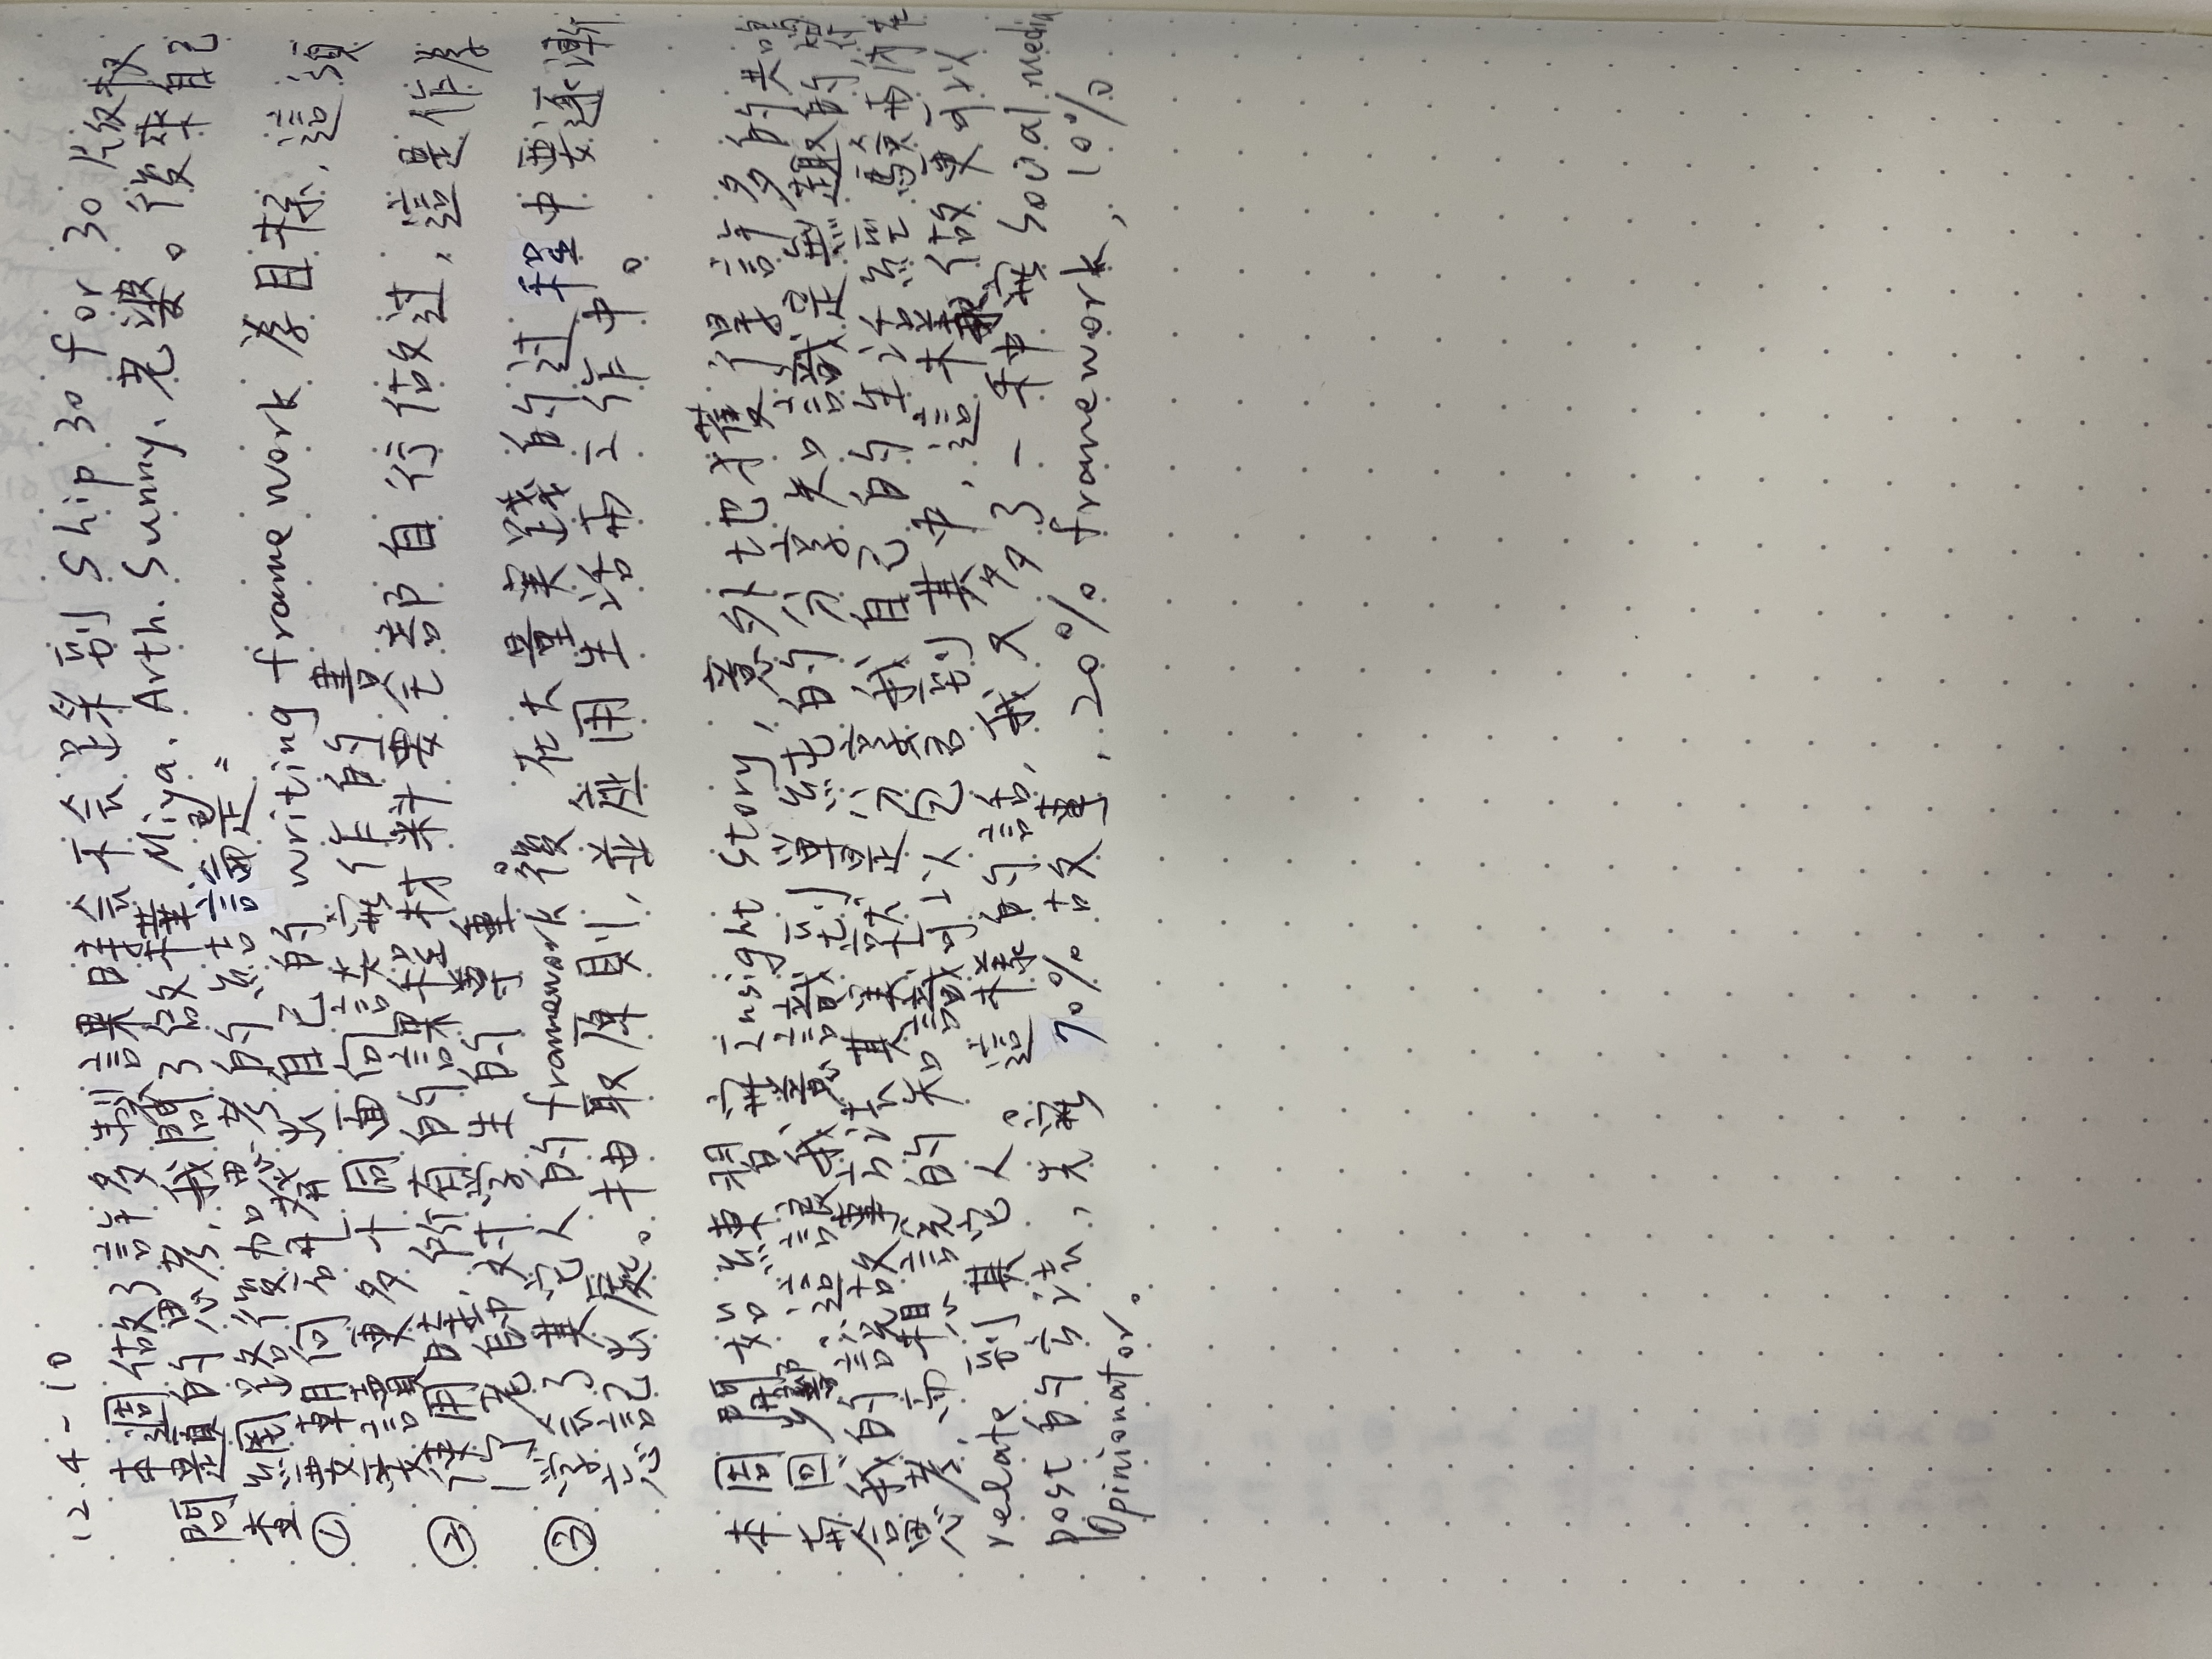 12.4-10
本週做了許多製課時会不会踩到 Ship 30 for 30 版权
問題的思考,我問了啟樺、Miya、Arth、Sunny、老婆。後來自己
查網路後加思考的結論是:
① 要朝向研發出自己的 writing framework 為目标,這須
要讀更多不同面向談寫作的書
② 使用時,所有的課程材料要全部自行做过,這是作為
一个老師对学生的尊重。
③ 学会了其它人的 framework 後 在大量実踐的过程中要逐漸
忘記出處。抽取原則,並應用生活與工作中。
本周開始練習寫 Insight Story,意外地獲得許多的共鳴
與回響。這讓我意識到單純的分享知識是無趣的,
我的說故事方法其実就是分享我自己的生活經驗與內在
思考,而想說的知識可以包含到其中,這樣做更可以
relate 到其它人。這樣的話,我又多了一种寫 Social media
post 的方法,先寫 70% 故事,20% framework,10%
Opinionator。